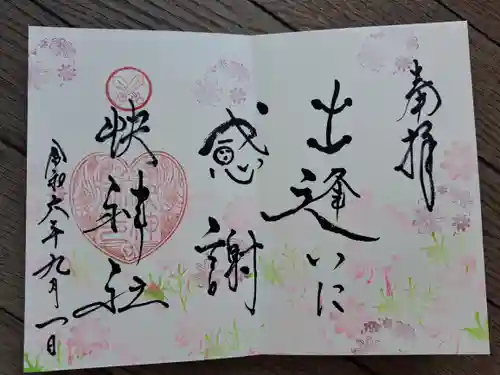 奉拝
出逢いに
感謝
鴨神社
令和六年九月一日